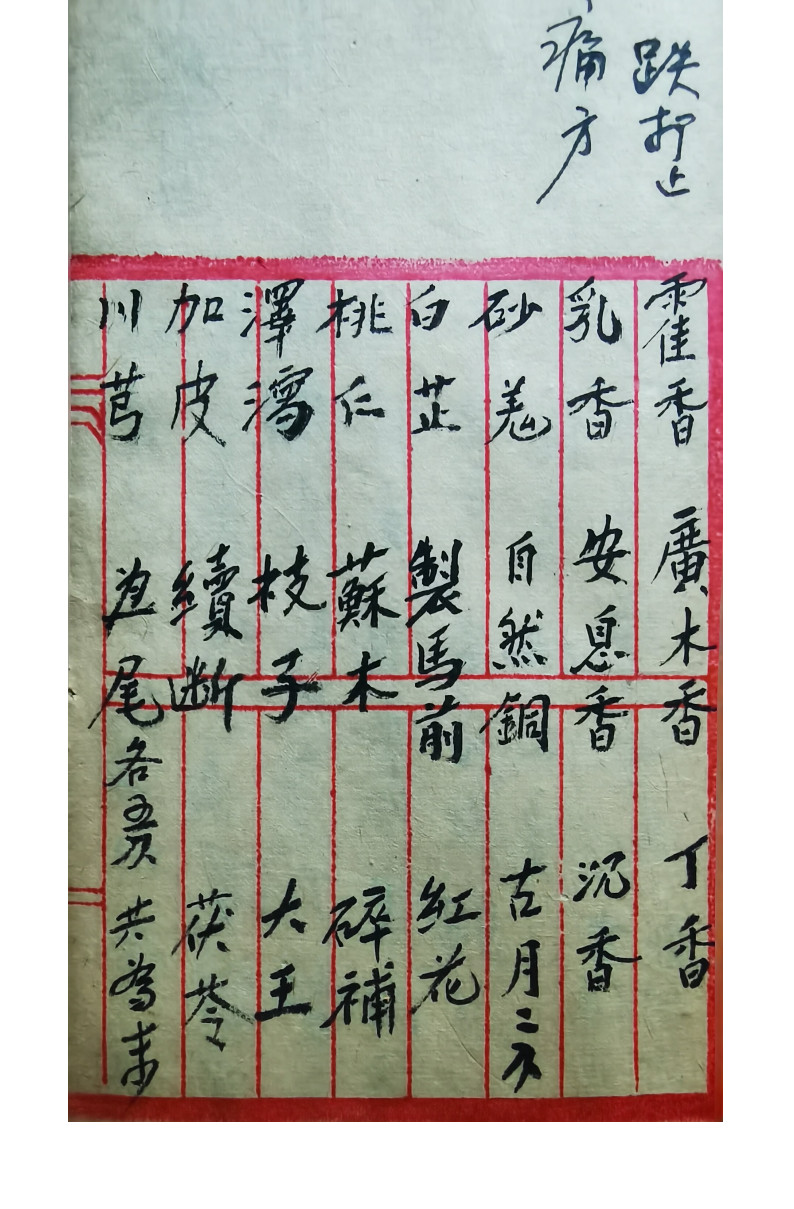 跌打止
痛方
霍香 廣木香 丁香
乳香 安息香 沉香
砂羌 自然銅 古月二錢
白芷 製馬前 紅花
桃仁 蘇木 碎補
澤瀉 枝子 大王
加皮 續斷 茯苓
川芎 尾各五錢 共為末